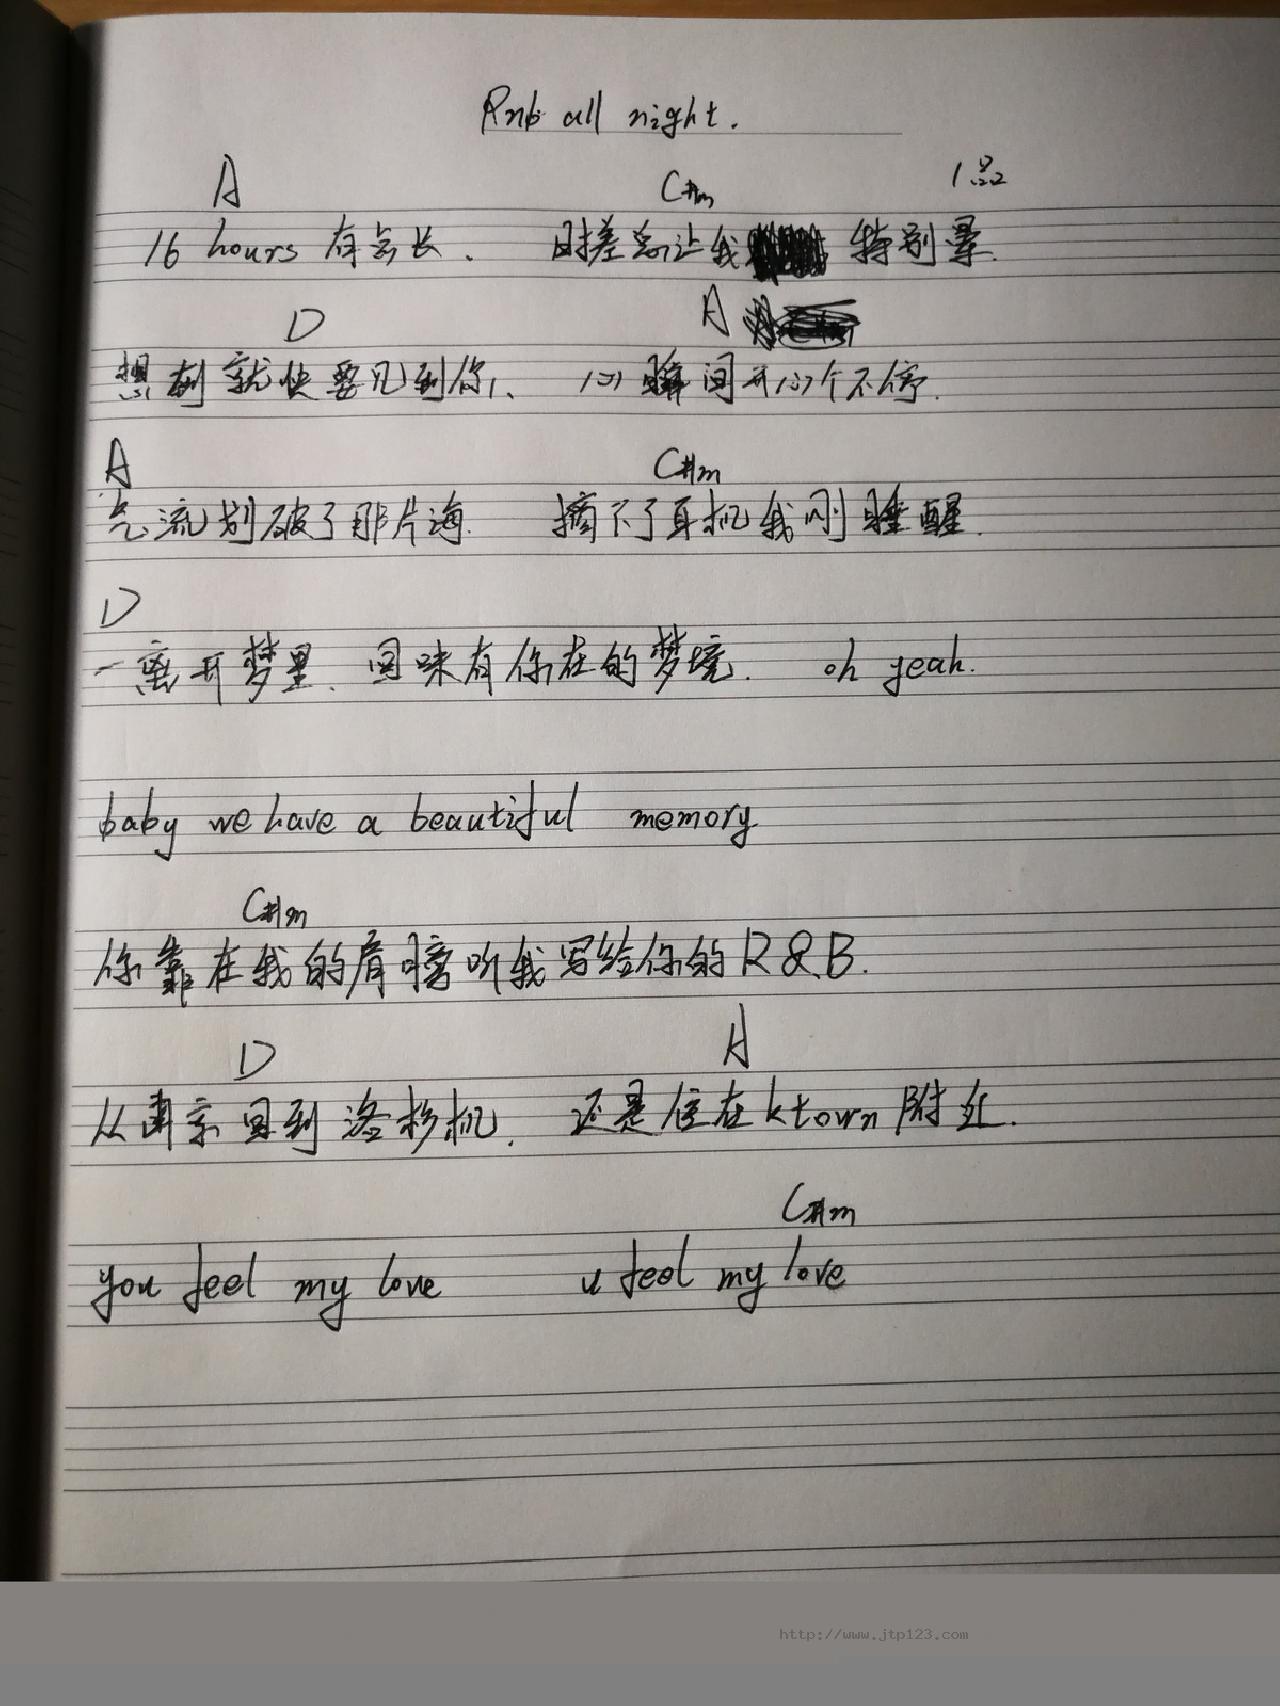 Rnb all night.
A C#m 1品
16 hours 有多长、 时差总让我 特别晕.
D A
想到就快要见到你, 心瞬间开心个不停.
A C#m
气流划破了那片海. 摘下了耳机我刚睡醒.
D
一离开梦里、回味有你在的梦境. oh yeah.
baby we have a beautiful memory
C#m
你靠在我的肩膀听我写给你的R&B.
D A
从南京回到洛杉机. 还是住在ktown附近.
C#m
you feel my love u feel my love
http://www.jtp123.com